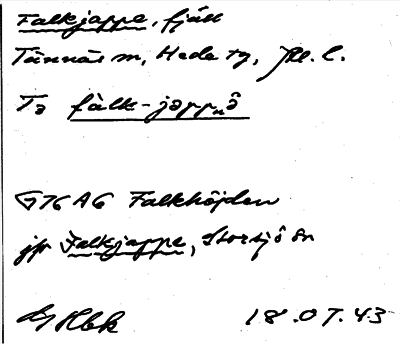 Falkjappe, fjäll
Tännäs sn, Hede tg, Jtl. l.
Ta fàlk-japp„ô
GK A6 Falkhöjden
jfr Falkjappe, Storsjö sn
18.07.43